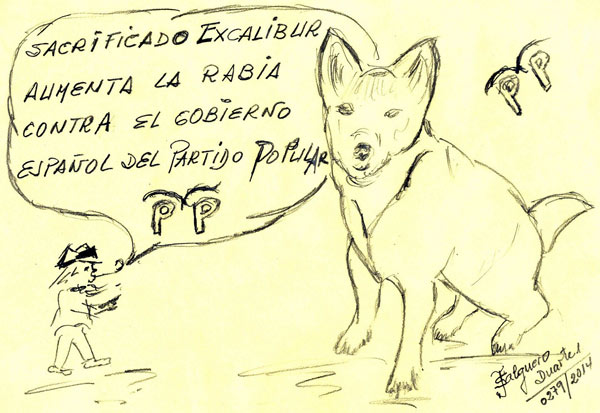 SACRIFICADO EXCALIBUR
AUMENTA LA RABIA
CONTRA EL GOBIERNO
ESPAÑOL DEL PARTIDO POPULAR
PP
PP
Salguero
Duarte
0279/2014